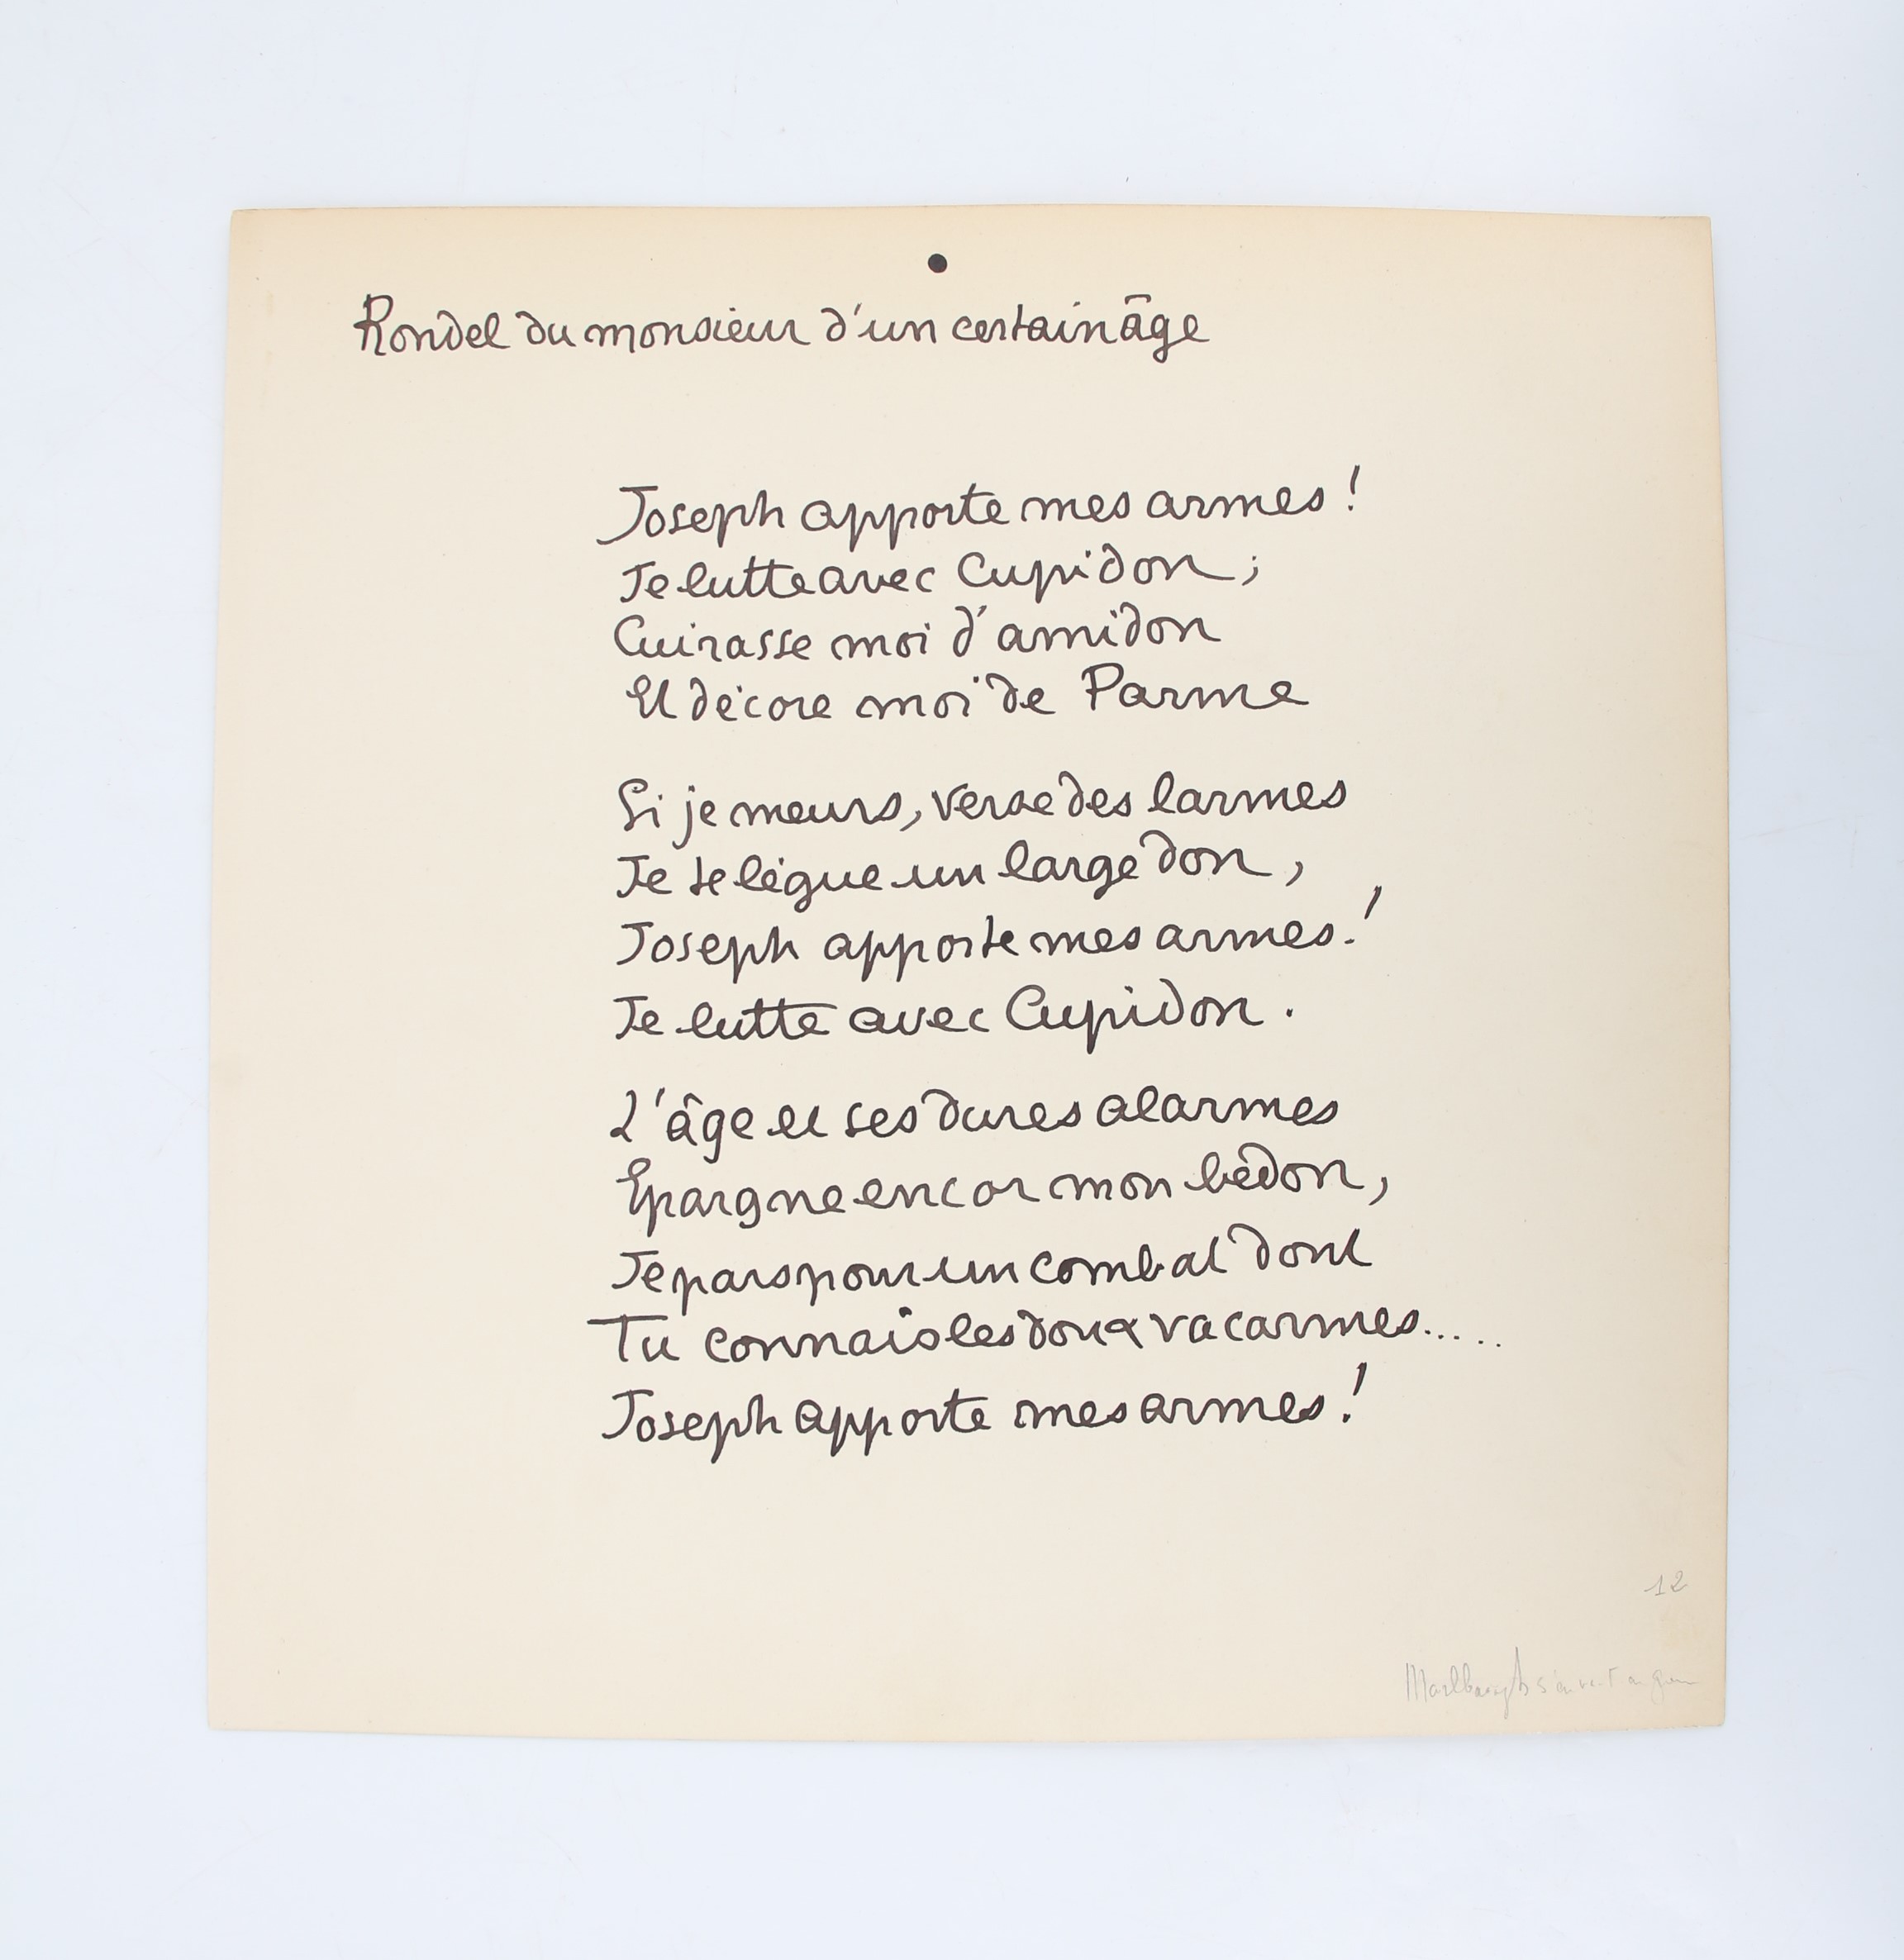 Rondel du monsieur d'un certain âge
Joseph apporte mes armes !
Je lutte avec Cupidon ;
Cuirasse moi d'amidon
Et décore moi de Parme
Si je meurs, verse des larmes
Je te lègue un large don,
Joseph apporte mes armes !
Je lutte avec Cupidon .
L'âge et ses dures alarmes
Epargne encor mon bedon,
Je pars pour un combat dont
Tu connais les doux vacarmes.....
Joseph apporte mes armes !
12
Marlborough s'en va t en guerre